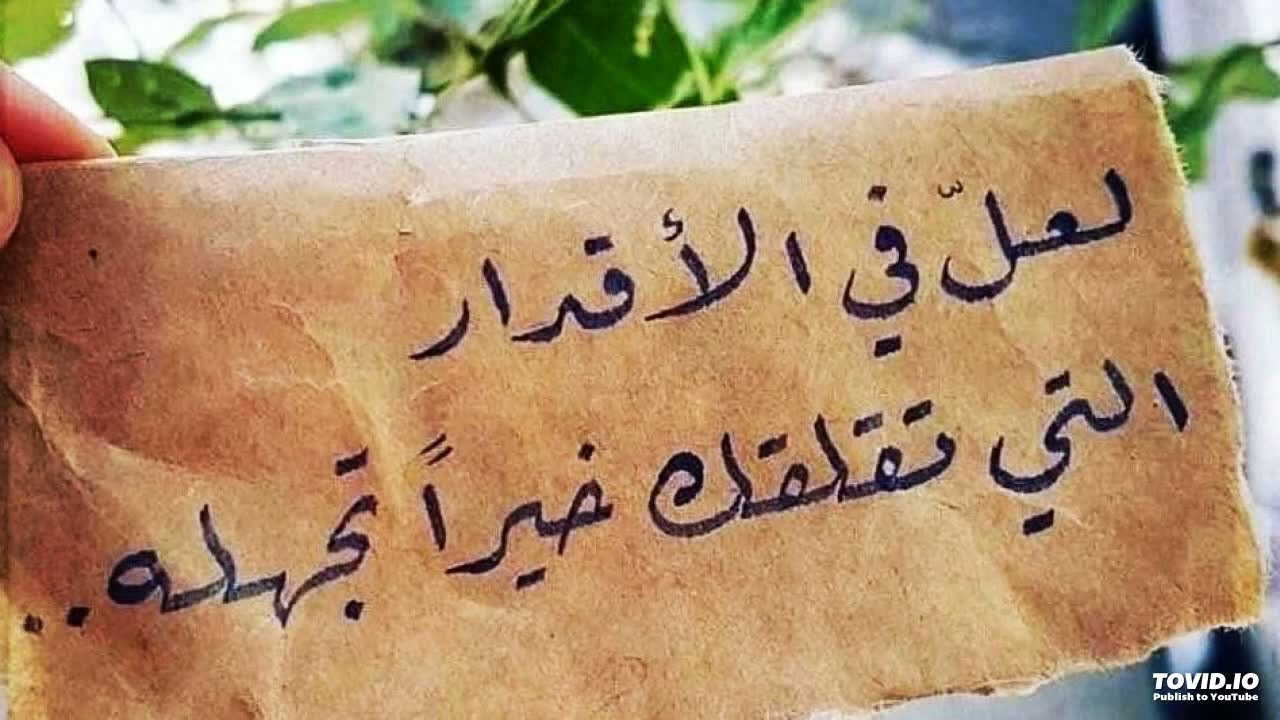 لعلّ في الأقدار
التي تقلقك خيراً تجهله..
TOVID.IO
Publish to YouTube